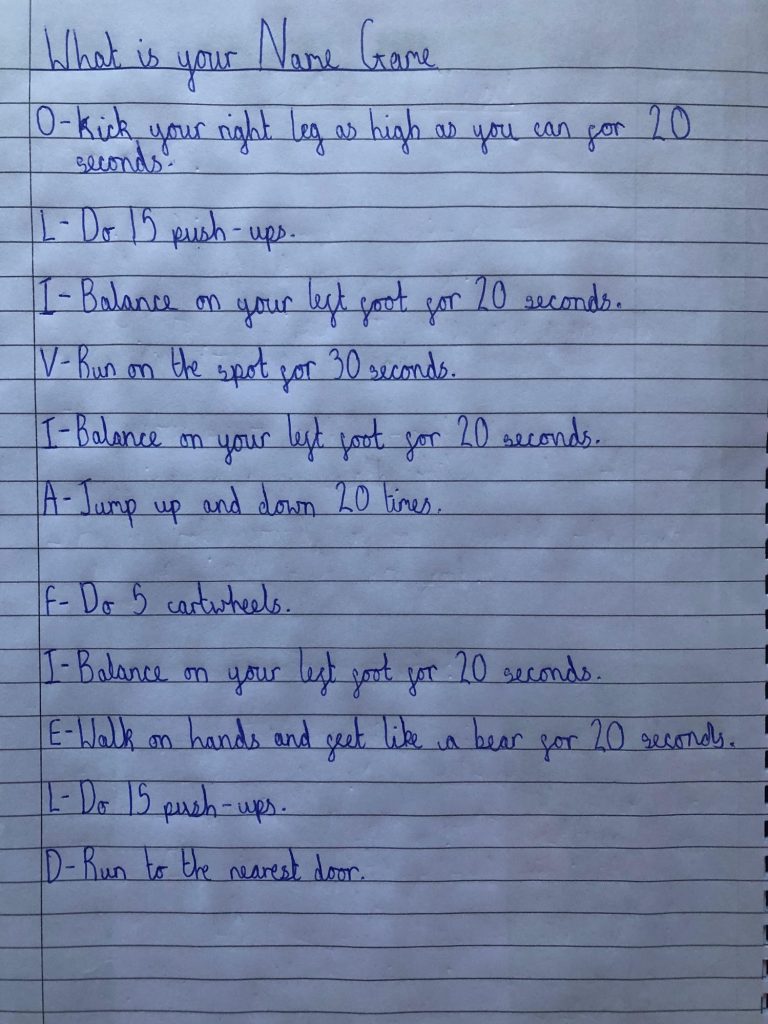 What is your Name Game
O-Kick your right leg as high as you can for 20
seconds.
L- Do 15 push-ups.
I- Balance on your left foot for 20 seconds.
V-Run on the spot for 30 seconds.
I-Balance on your left foot for 20 seconds.
A-Jump up and down 20 times.
F- Do 5 cartwheels.
I-Balance on your left foot for 20 seconds.
E-Walk on hands and feet like a bear for 20 seconds.
L- Do 15 push-ups.
D-Run to the nearest door.